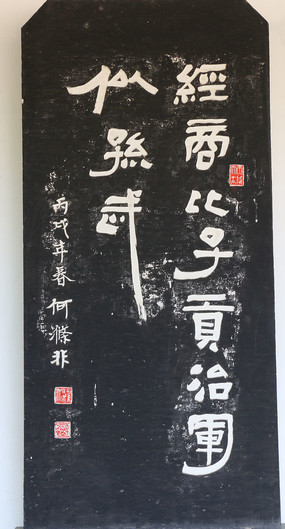 經商比子貢治軍
似孫武
丙戌年春何滌非